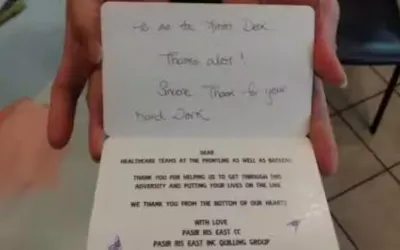 to all the Nurses Dear
Thanks alot!
Sincere Thank for your
Hard Work
DEAR
HEALTHCARE TEAMS AT THE FRONTLINE AS WELL AS
THANK YOU FOR HELPING US TO GET THROUGH THIS
ADVERSITY AND PUTTING YOUR LIVES ON THE LINE
WE THANK YOU FROM THE BOTTOM OF OUR HEARTS
WITH LOVE
PASIR RIS EAST CC
PASIR RIS EAST INC QUILLING GROUP